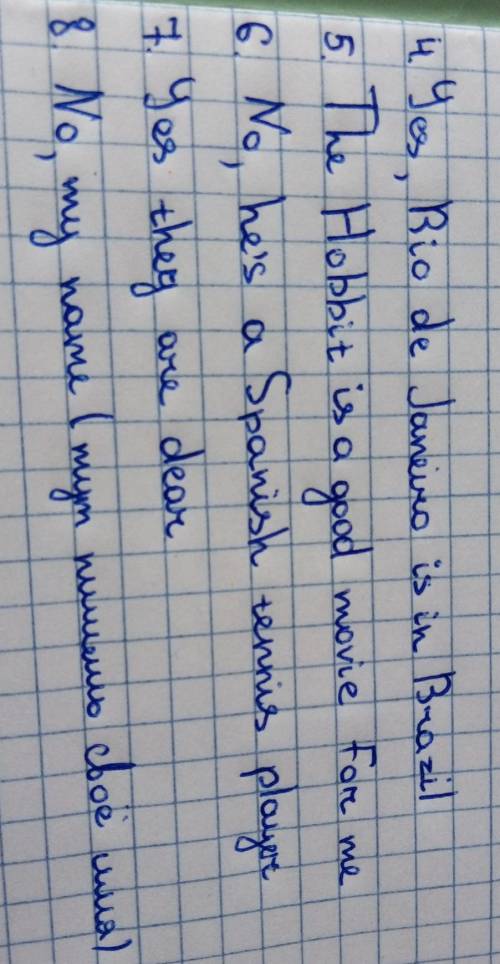 4. Yes, Rio de Janeiro is in Brazil
5. The Hobbit is a good movie for me
6. No, he's a Spanish tennis player
7. Yes they are dear
8. No, my name (тут пишешь своё имя)